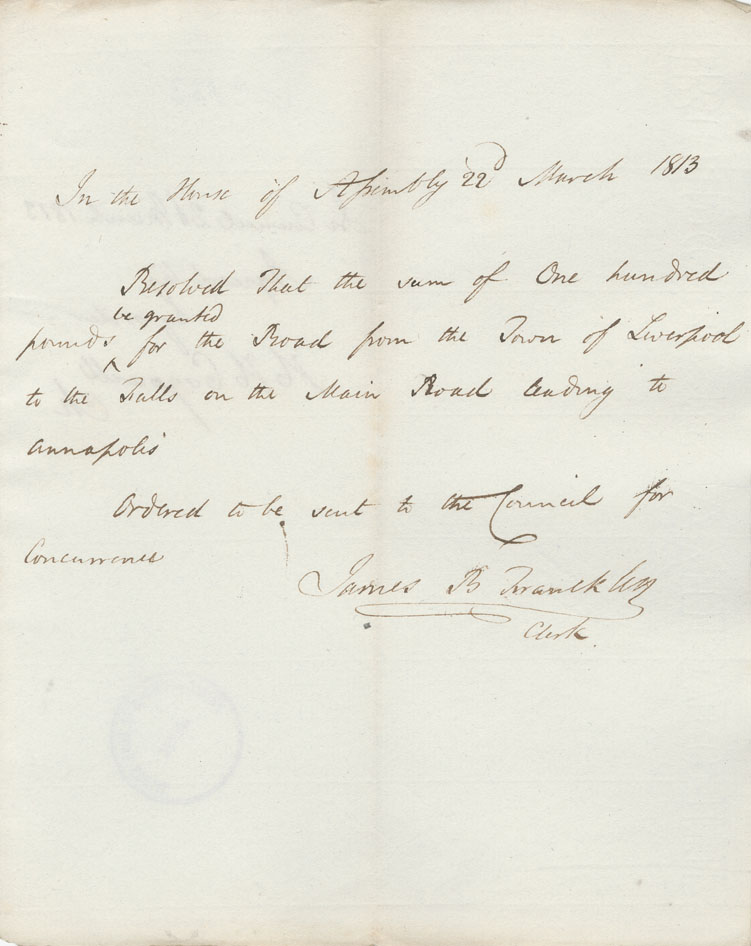 In the House of Assembly 22d March 1813
Resolved That the sum of One hundred
be granted
pounds ^ for the Road from the Town of Liverpool
to the Falls on the Main Road leading to
Annapolis
Ordered to be sent to the Council for
Concurrence
James B Francklin
Clerk.